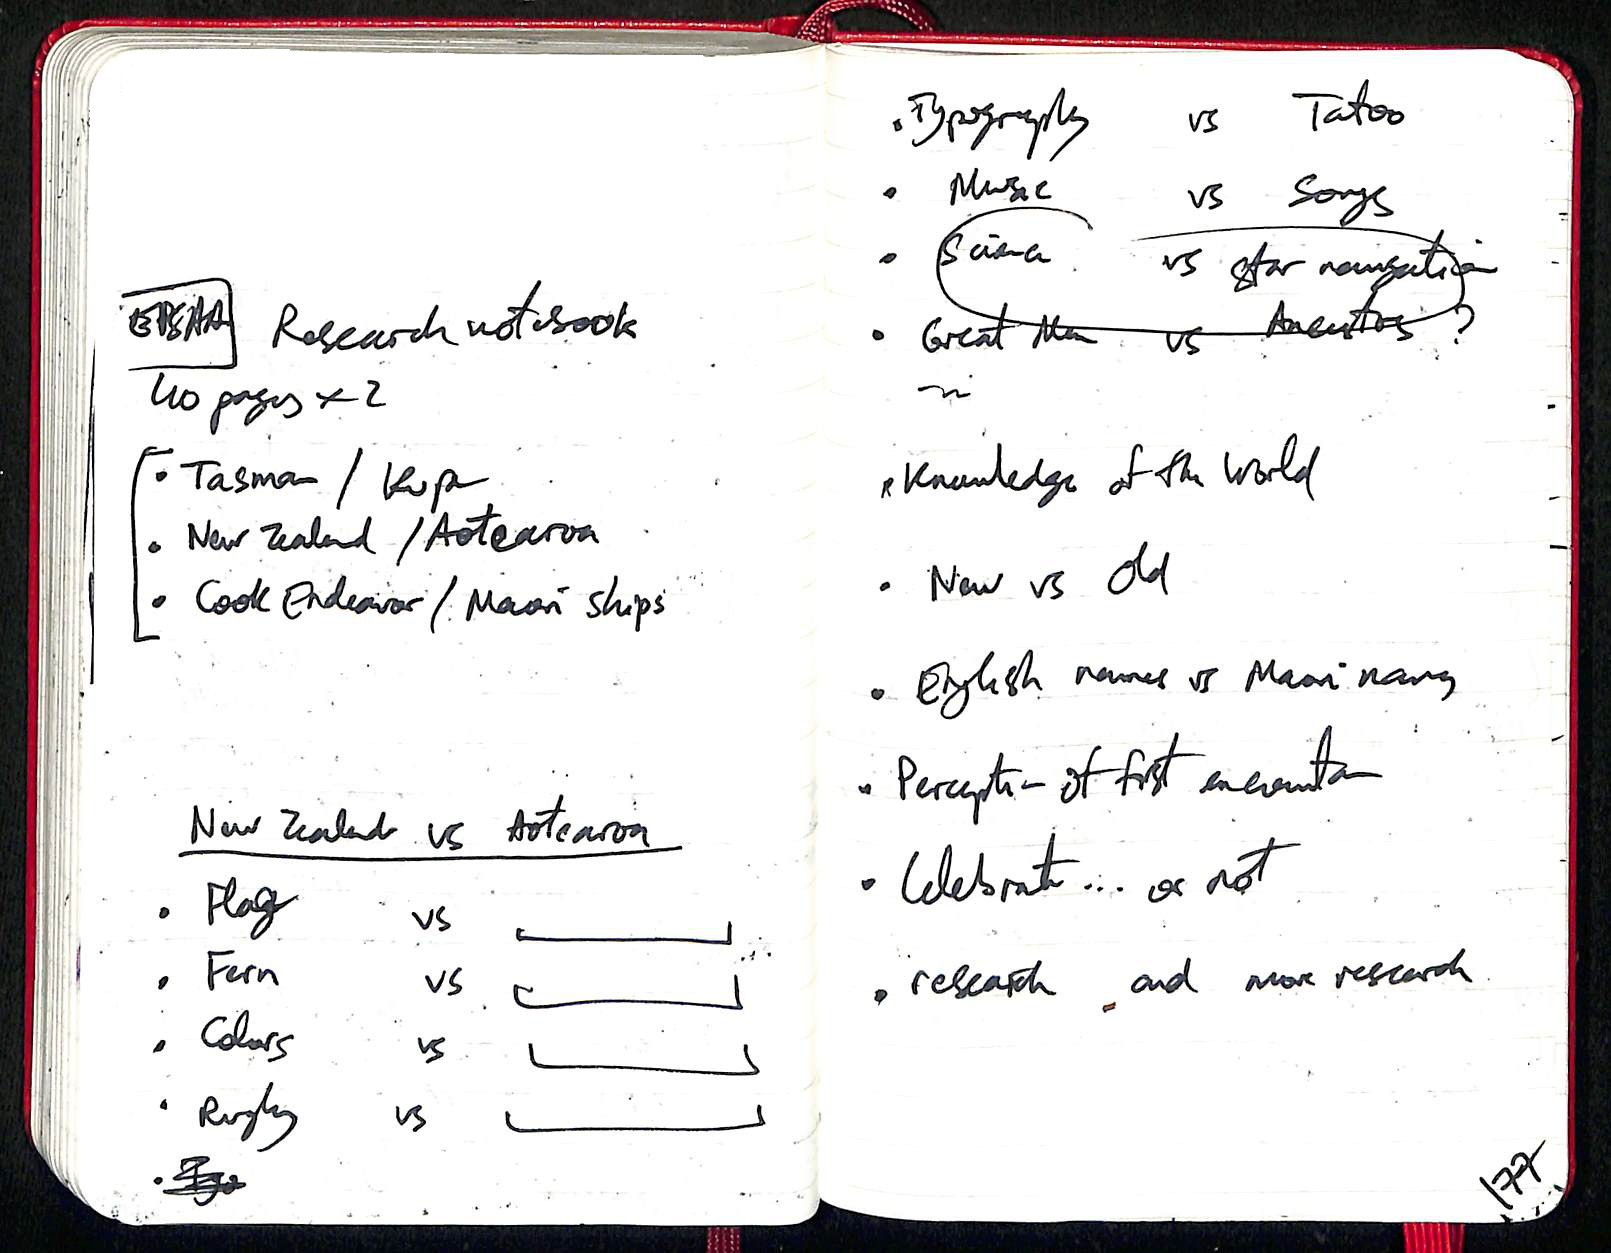 Research notebook
40 pages x 2
• Tasman / Kupe
• New Zealand / Aotearoa
• Cook Endeavor / Maori ships
New Zealand vs Aotearoa
• Flag vs
• Fern vs
• Colors vs
• Rugby vs
• Typography vs Tatoo
• Music vs Songs
• Science vs star navigation
• Great Men vs Ancestors ?
• Knowledge of the World
• New vs Old
• English names vs Maori names
• Perception of first encounter
• Celebrate... or not
• research and more research
177